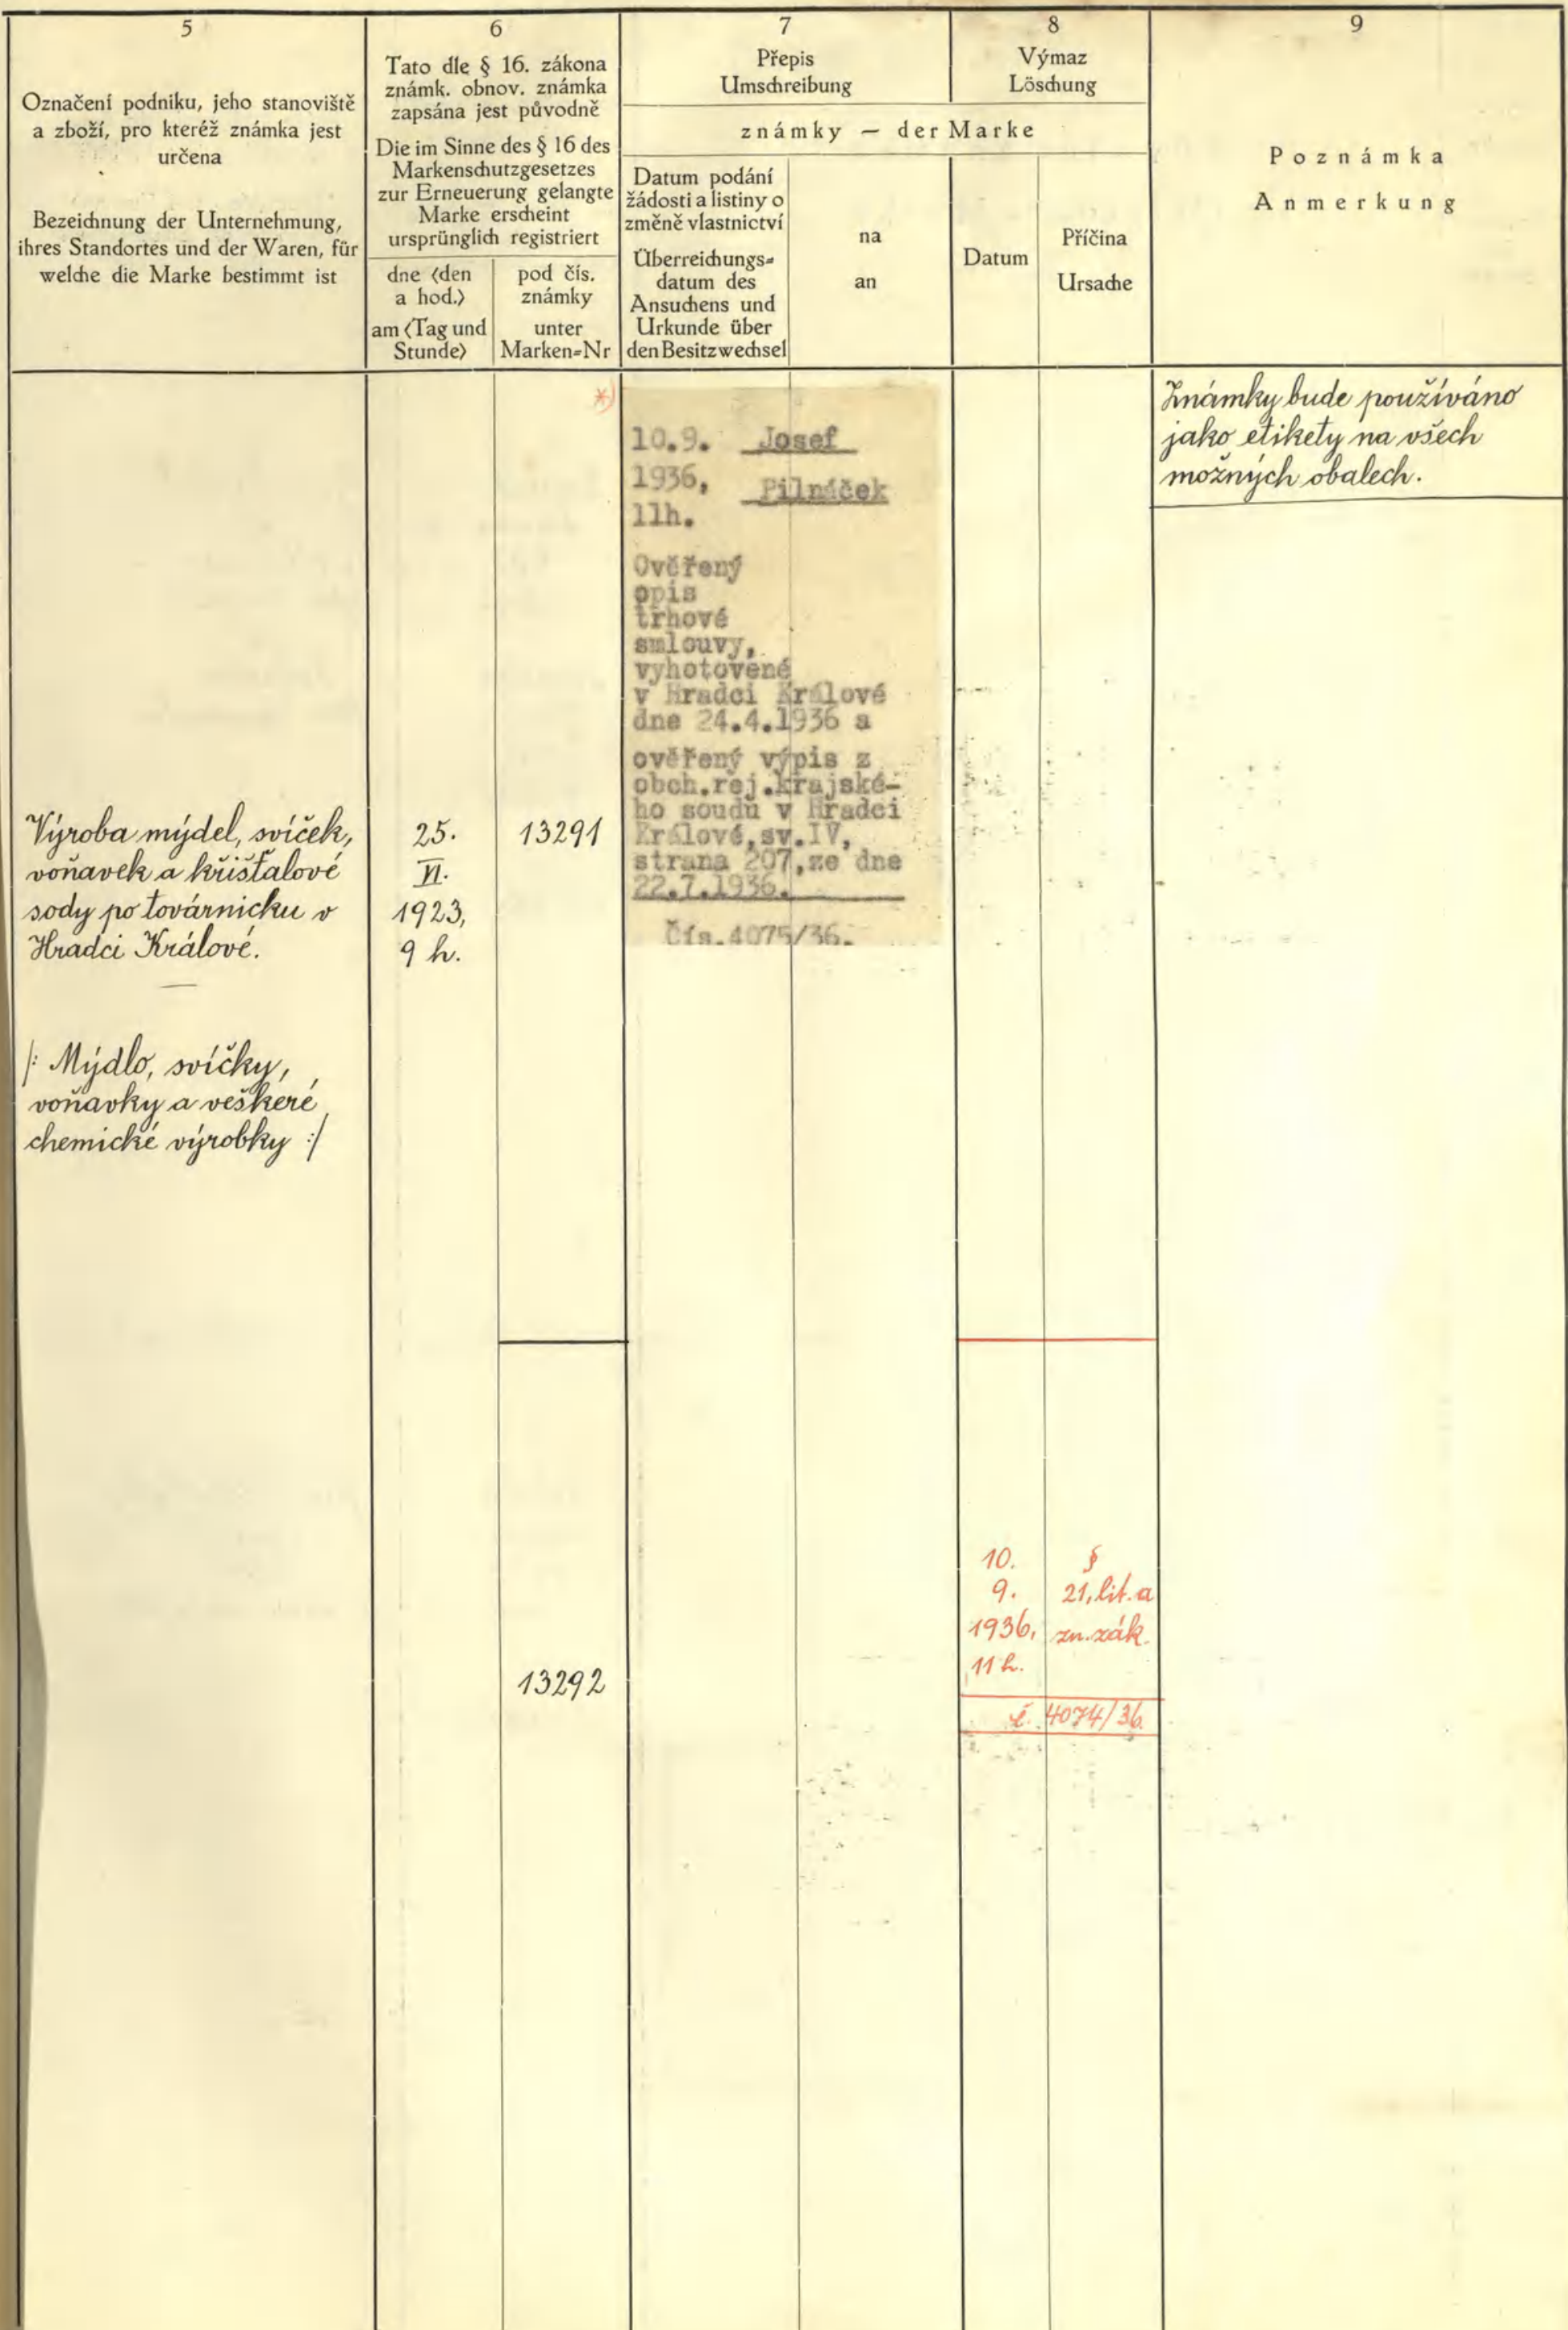 5
Označení podniku, jeho stanoviště
a zboží, pro kteréž známka jest
určena
Bezeichnung der Unternehmung,
ihres Standortes und der Waren, für
welche die Marke bestimmt ist
6
Tato dle § 16. zákona
známk. obnov. známka
zapsána jest původně
Die im Sinne des § 16 des
Markenschutzgesetzes
zur Erneuerung gelangte
Marke erscheint
ursprünglich registriert
dne (den
a hod.)
am (Tag und
Stunde)
pod čís.
známky
unter
Marken-Nr
7
Přepis
Umschreibung
8
Výmaz
Löschung
známky — der Marke
Datum podání
žádosti a listiny o
změně vlastnictví
Überreichungs-
datum des
Ansuchens und
Urkunde über
den Besitzwechsel
na
an
Datum
Příčina
Ursache
9
Poznámka
Anmerkung
Výroba mýdel, svíček,
voňavek a křišťalové
sody po továrnicku v
Hradci Králové.
/: Mýdlo, svíčky,
voňavky a veškeré
chemické výrobky :/
25.
VI.
1923,
9 h.
*)
13291
13292
10.9. Josef
1936, Pilnáček
11h.
Ověřený
opis
trhové
smlouvy,
vyhotovené
v Hradci Králové
dne 24.4.1936 a
ověřený výpis z
obch.rej.krajské-
ho soudu v Hradci
Králové,sv.IV,
strana 207,ze dne
22.7.1936.
Čís.4075/36.
10.
9.
1936,
11 h.
§
21, lit. a
zn. zák.
č. 4074/36.
Známky bude používáno
jako etikety na všech
možných obalech.